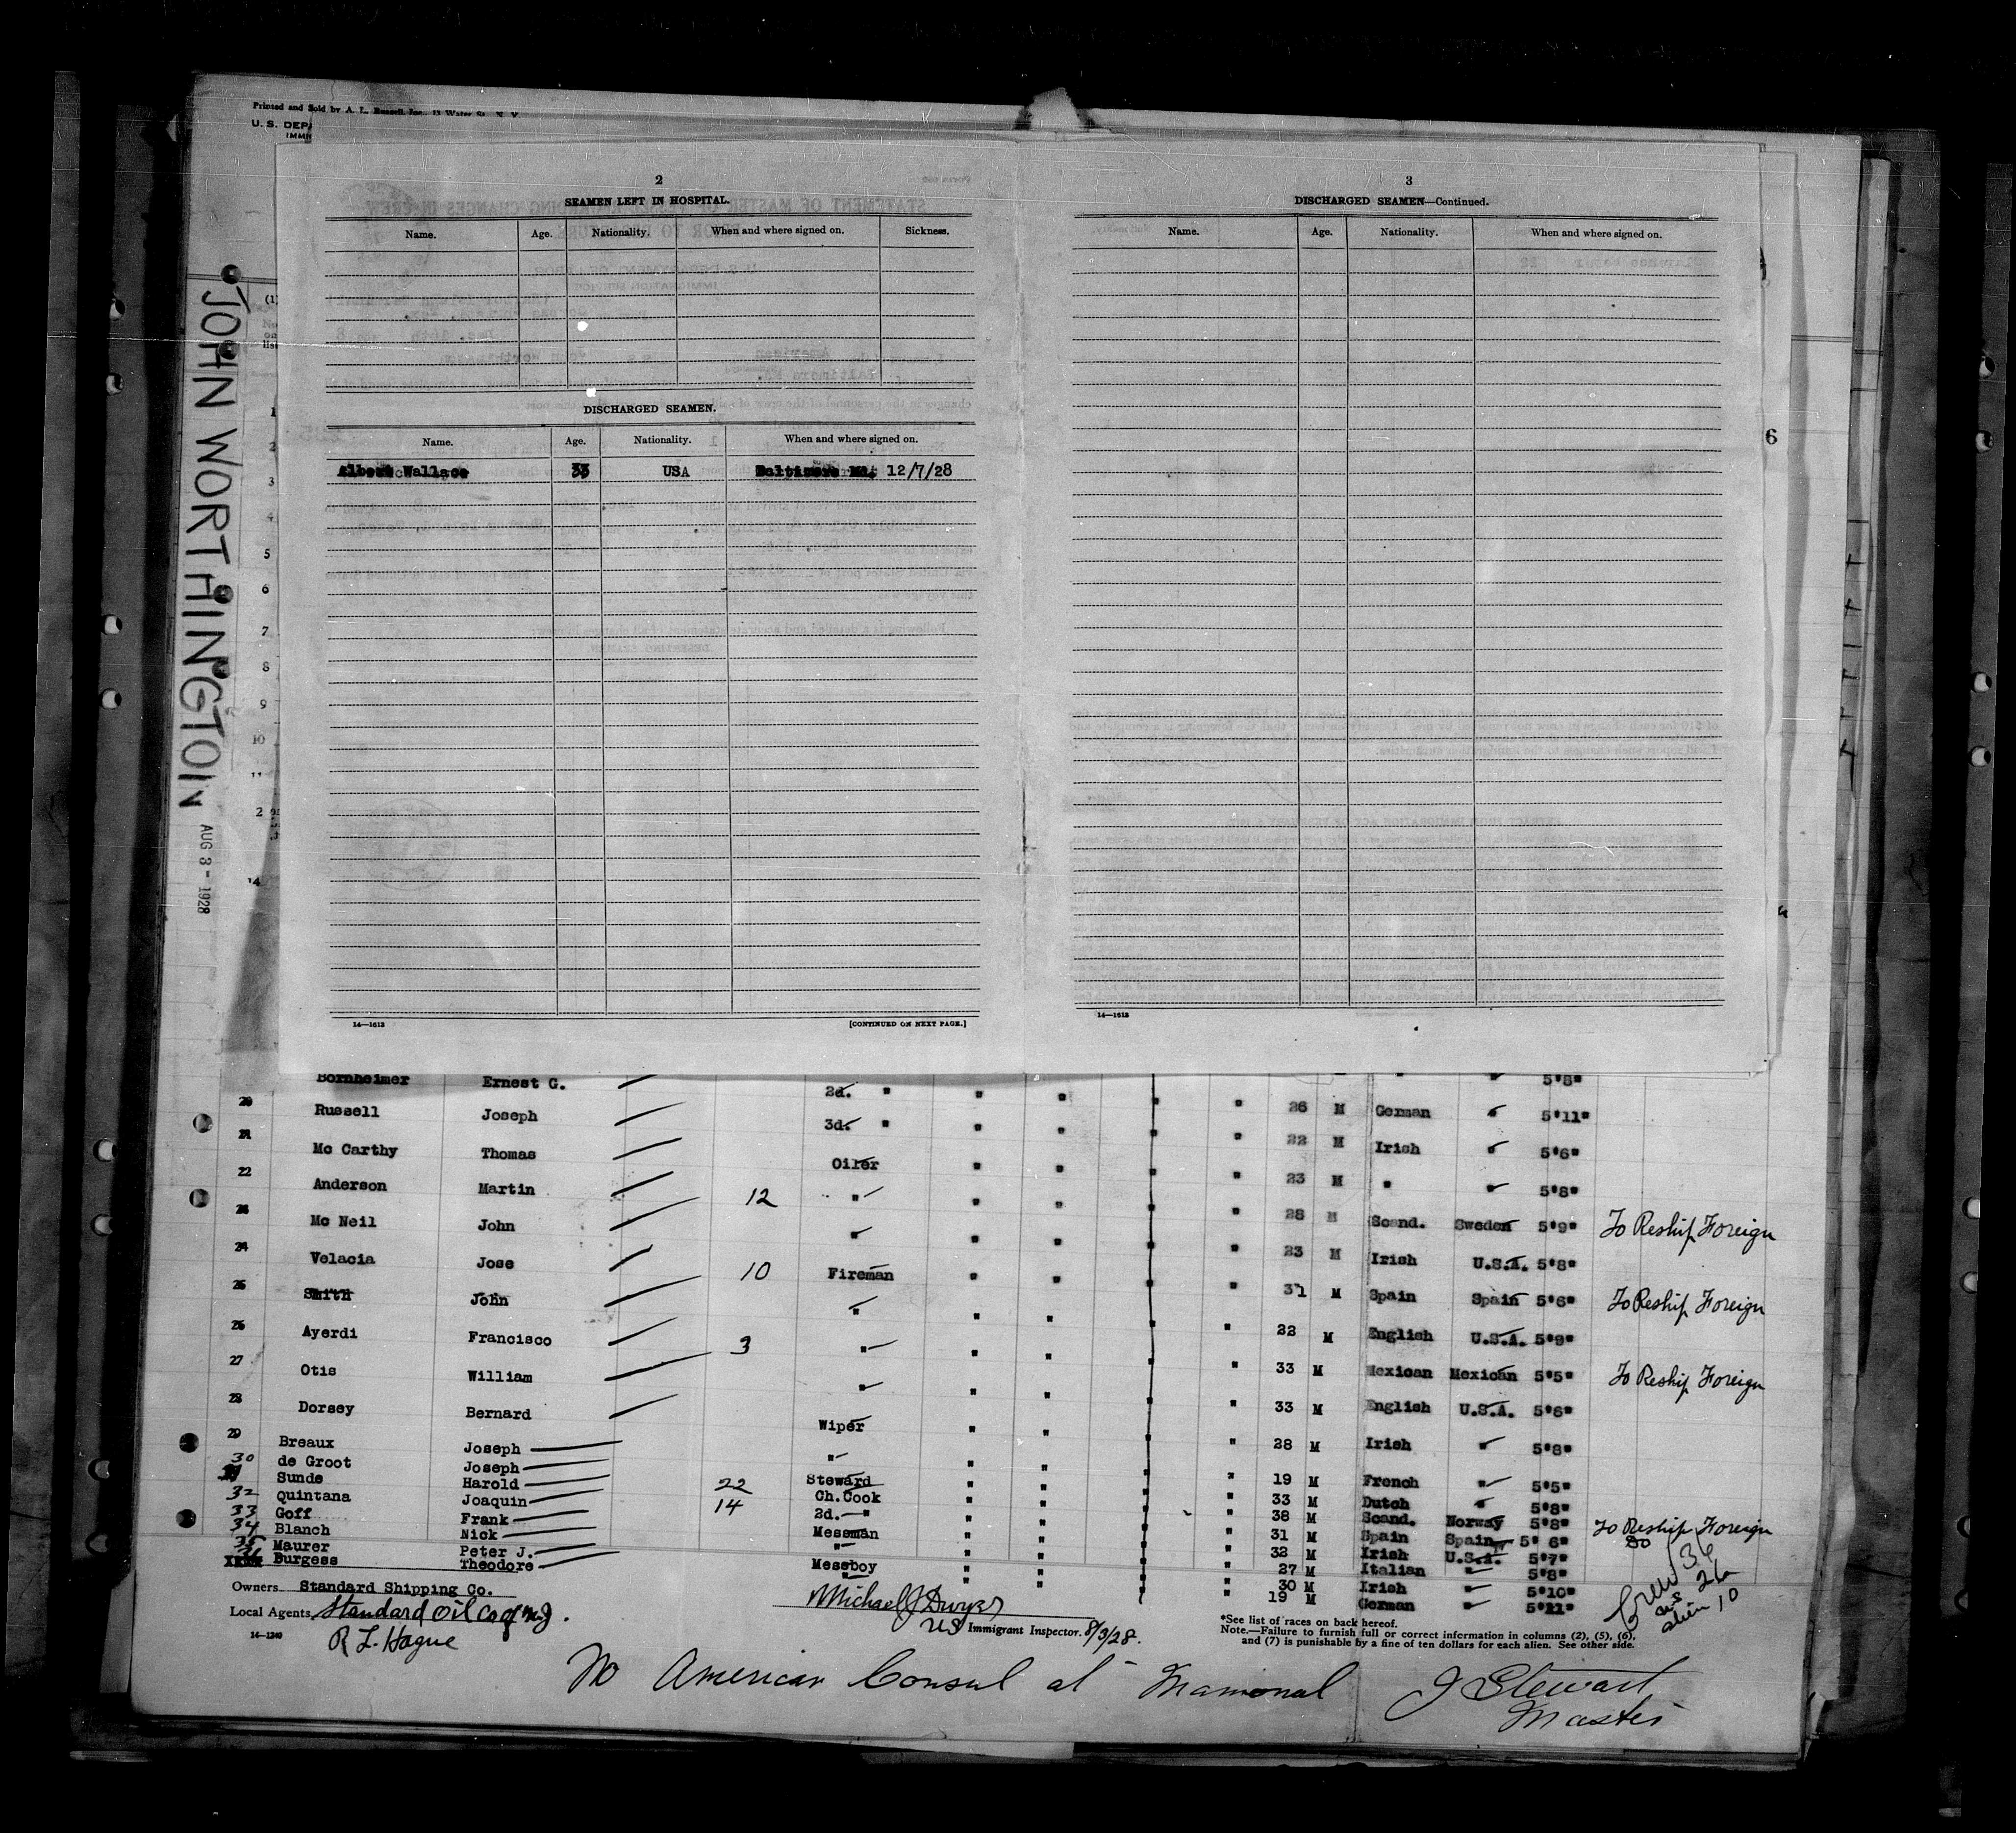 Printed and Sold by A. L. Russell, Inc., 13 Water St., N. Y.
U. S. DEPA
IMMI
JOHN WORTHINGTON
AUG 8 - 1928
2
SEAMEN LEFT IN HOSPITAL.
Name. Age. Nationality. When and where signed on. Sickness.
DISCHARGED SEAMEN.
Name. Age. Nationality. When and where signed on.
Albert Wallace 33 USA Baltimore Md. 12/7/28
14—1613 [CONTINUED ON NEXT PAGE.]
3
DISCHARGED SEAMEN—Continued.
Name. Age. Nationality. When and where signed on.
14—1613
6
(1)
1
2
3
4
5
6
7
8
9
10
11
2
14
Bornheimer Ernest G. 2d. " " " " " " 5'8"
20 Russell Joseph 3d. " " " " " 26 M German 5'11"
21 Mc Carthy Thomas Oiler " " " " 22 M Irish 5'6"
22 Anderson Martin 12 " " " " " 23 M " 5'8"
Mc Neil John " " " " 28 M Scand. Sweden 5'9" To Reship Foreign
24 Velacia Jose 10 Fireman " " " " 23 M Irish U.S.A. 5'8"
25 Smith John " " " " " 31 M Spain Spain 5'6" To Reship Foreign
26 Ayerdi Francisco 3 " " " " " 22 M English U.S.A. 5'9"
27 Otis William " " " " 33 M Mexican Mexican 5'5" To Reship Foreign
28 Dorsey Bernard Wiper " " " " 33 M English U.S.A. 5'6"
29 Breaux Joseph " " " " " 28 M Irish 5'8"
30 de Groot Joseph Steward " " " " 19 M French 5'5"
31 Sunde Harold 22 Ch.Cook " " " " 33 M Dutch 5'8"
32 Quintana Joaquin 14 2d. " " " " " 38 M Scand. Norway 5'8" To Reship Foreign
33 Goff Frank Messman " " " " 31 M Spain Spain 5'6" Do
34 Blanch Nick " " " " " 32 M Irish U.S.A. 5'7"
35 Maurer Peter J. Messboy " " " " 27 M Italian 5'8"
36 Burgess Theodore " " " " 30 M Irish 5'10"
19 M German 5'11"
Crew 36
U.S 26
alien 10
Owners Standard Shipping Co.
Local Agents Standard Oil Co of N.J.
14—1240 R L. Hague
Michael J Dwyer
US Immigrant Inspector. 8/3/28.
*See list of races on back hereof.
Note.—Failure to furnish full or correct information in columns (2), (5), (6),
and (7) is punishable by a fine of ten dollars for each alien. See other side.
No American Consul at Mamonal
J Stewart
Master